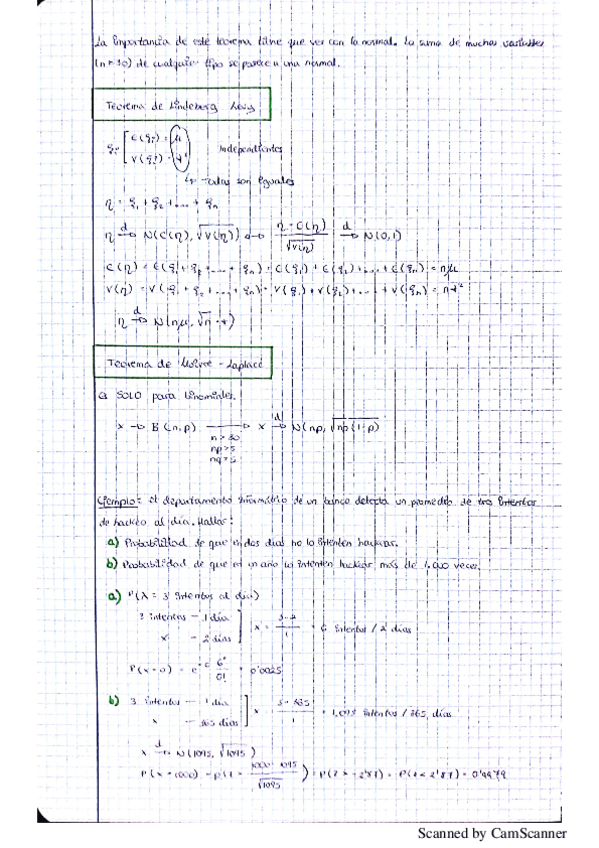 La importancia de este teorema tiene que ver con la normal. La suma de muchas variables
(n > 30) de cualquier tipo se parece a una normal.
Teorema de Lindeberg Levy
ξi [ E(ξi) = μ
V(ξi) = σ² independientes
↳ Todas son iguales
η = ξ1 + ξ2 + ... + ξn
η →d N(E(η), √V(η)) ↔ (η - E(η)) / √V(η) →d N(0,1)
E(η) = E(ξ1 + ξ2 + ... + ξn) = E(ξ1) + E(ξ2) + ... + E(ξn) = nμ
V(η) = V(ξ1 + ξ2 + ... + ξn) = V(ξ1) + V(ξ2) + ... + V(ξn) = nσ²
η →d N(nμ, √n · σ)
Teorema de Moivre - Laplace
SOLO para binomiales.
X → B(n, p) → X →d N(np, √np(1-p)
n > 30
np > 5
nq > 5
Ejemplo: el departamento informático de un banco detecta un promedio de tres intentos
de hackeo al día. Hallar:
a) Probabilidad de que en dos días no lo intenten hackear.
b) Probabilidad de que en un año lo intenten hackear más de 1.000 veces.
a) P(λ = 3 intentos al día)
3 intentos — 1 día
x — 2 días ] x = 3 · 2 / 1 = 6 intentos / 2 días
P(x = 0) = e^-6 6^0 / 0! = 0'0025
b) 3 intentos — 1 día
x — 365 días ] x = 3 · 365 / 1 = 1.095 intentos / 365 días
x →d N(1095, √1095)
P(x > 1000) = P(z > (1000 - 1095) / √1095) = P(z > -2'87) = P(z < 2'87) = 0'9979
Scanned by CamScanner